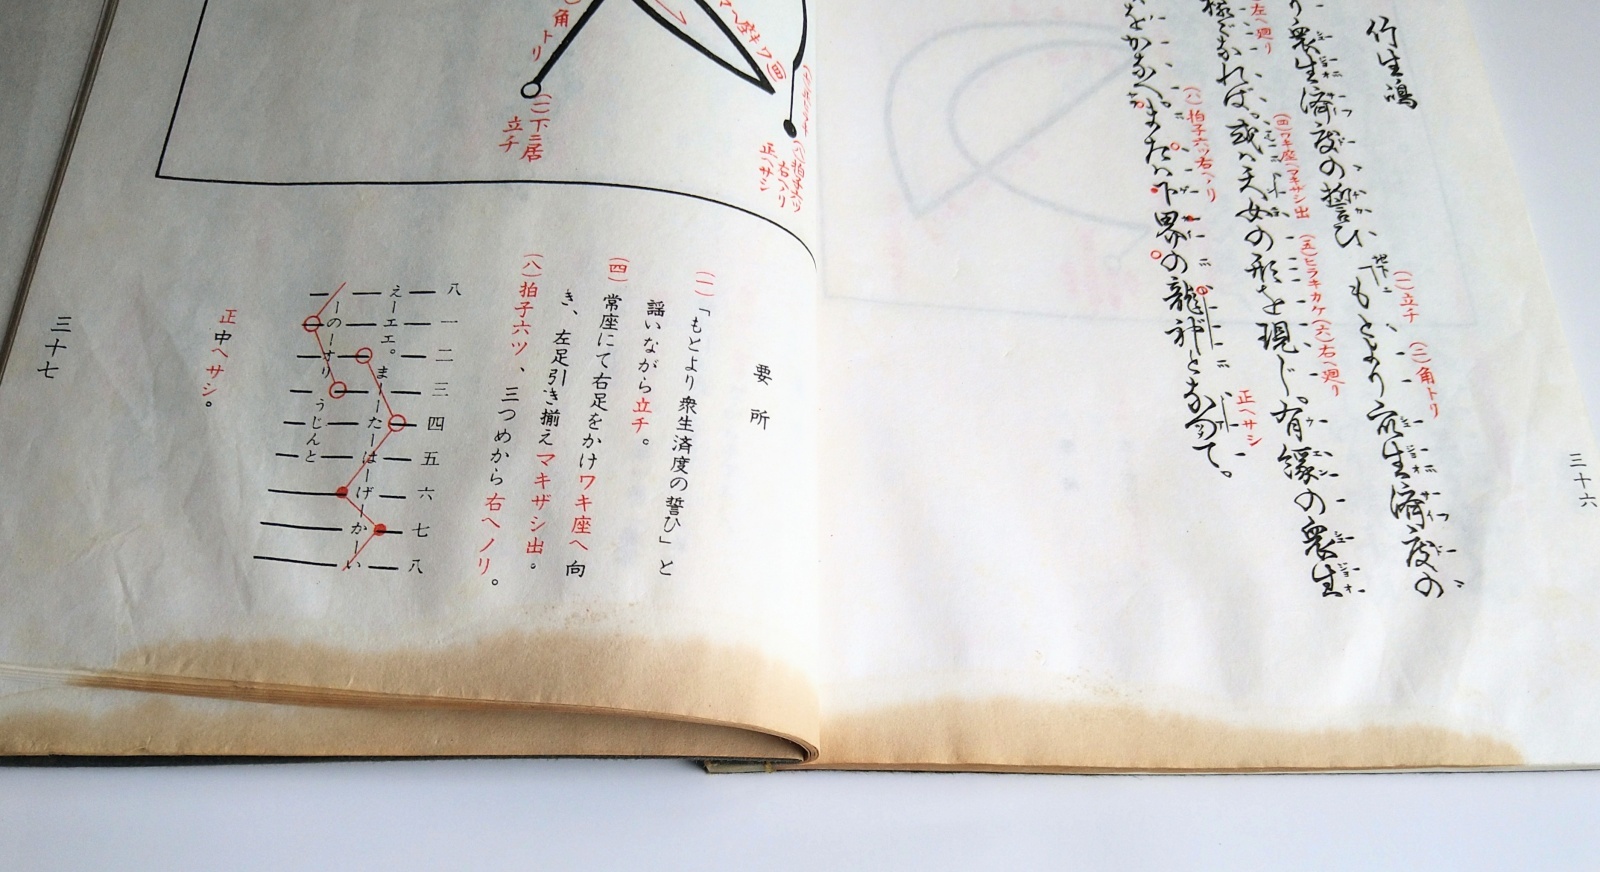 竹生嶋
地下
もとより衆生済度の
り衆生済度の誓ひ
様〻なれば、或ハ天女の形を現じ。有縁の衆生
をかなへ。またハ下界の龍神となつて。
(一)立チ
(二)角トリ
左へ廻リ
(四)ワキ座へマキザシ出
(五)ヒラキカケ
(六)右へ廻リ
(八)拍子六ツ右へノリ
正ヘサシ
三十六
角トリ
(一)下ニ居
立チ
(八)拍子六ツ
右ヘノリ
正ヘサシ
要所
(一)「もとより衆生済度の誓ひ」と
謡いながら立チ。
(四)常座にて右足をかけワキ座へ向
き、左足引き揃えマキザシ出。
(八)拍子六ツ、三つめから右へノリ。
八 一 二 三 四 五 六 七 八
えーエエ。まーたーはーげーかーい
ーのーすりうじんと
正中ヘサシ。
三十七